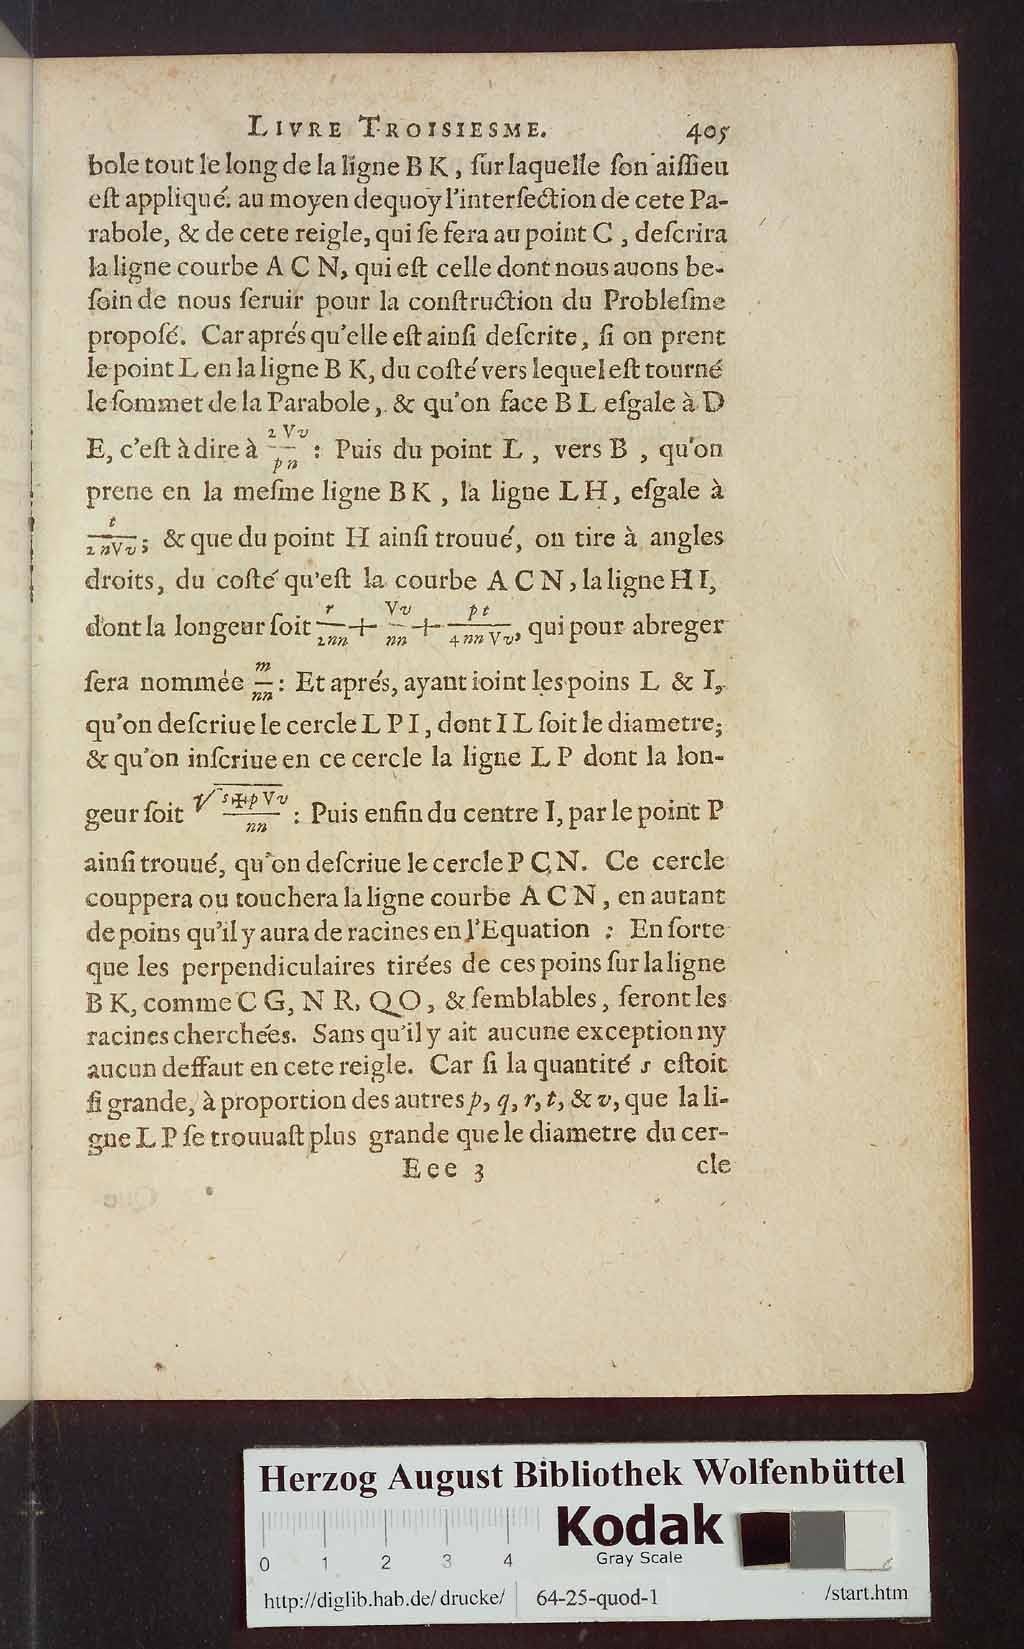 LIVRE TROISIESME. 405
bole tout le long de la ligne B K, ſur laquelle ſon aiſſieu
eſt appliqué. au moyen dequoy l'interſection de cete Pa-
rabole, & de cete reigle, qui ſe fera au point C, deſcrira
la ligne courbe A C N, qui eſt celle dont nous auons be-
ſoin de nous ſeruir pour la conſtruction du Probleſme
propoſé. Car aprés qu'elle eſt ainſi deſcrite, ſi on prent
le point L en la ligne B K, du coſté vers lequel eſt tourné
le ſommet de la Parabole, & qu'on face B L eſgale à D
E, c'eſt à dire à 2√v/pn : Puis du point L, vers B, qu'on
prene en la meſme ligne B K, la ligne L H, eſgale à
t/2n√v; & que du point H ainſi trouué, on tire à angles
droits, du coſté qu'eſt la courbe A C N, la ligne H I,
dont la longeur ſoit r/2nn + √v/nn + pt/4nn√v, qui pour abreger
ſera nommée m/nn : Et aprés, ayant ioint les poins L & I,
qu'on deſcriue le cercle L P I, dont I L ſoit le diametre;
& qu'on inſcriue en ce cercle la ligne L P dont la lon-
geur ſoit √ s+p√v/nn : Puis enfin du centre I, par le point P
ainſi trouué, qu'on deſcriue le cercle P C N. Ce cercle
couppera ou touchera la ligne courbe A C N, en autant
de poins qu'il y aura de racines en l'Equation : En ſorte
que les perpendiculaires tirées de ces poins ſur la ligne
B K, comme C G, N R, Q O, & ſemblables, ſeront les
racines cherchées. Sans qu'il y ait aucune exception ny
aucun deffaut en cete reigle. Car ſi la quantité s eſtoit
ſi grande, à proportion des autres p, q, r, t, & v, que la li-
gne L P ſe trouuaſt plus grande que le diametre du cer-
Eee 3 cle
Herzog August Bibliothek Wolfenbüttel
Kodak
Gray Scale
0 1 2 3 4
http://diglib.hab.de/drucke/ 64-25-quod-1 /start.htm